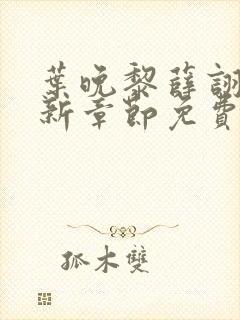 葉晚黎薛詡
新章節免費
孤木雙